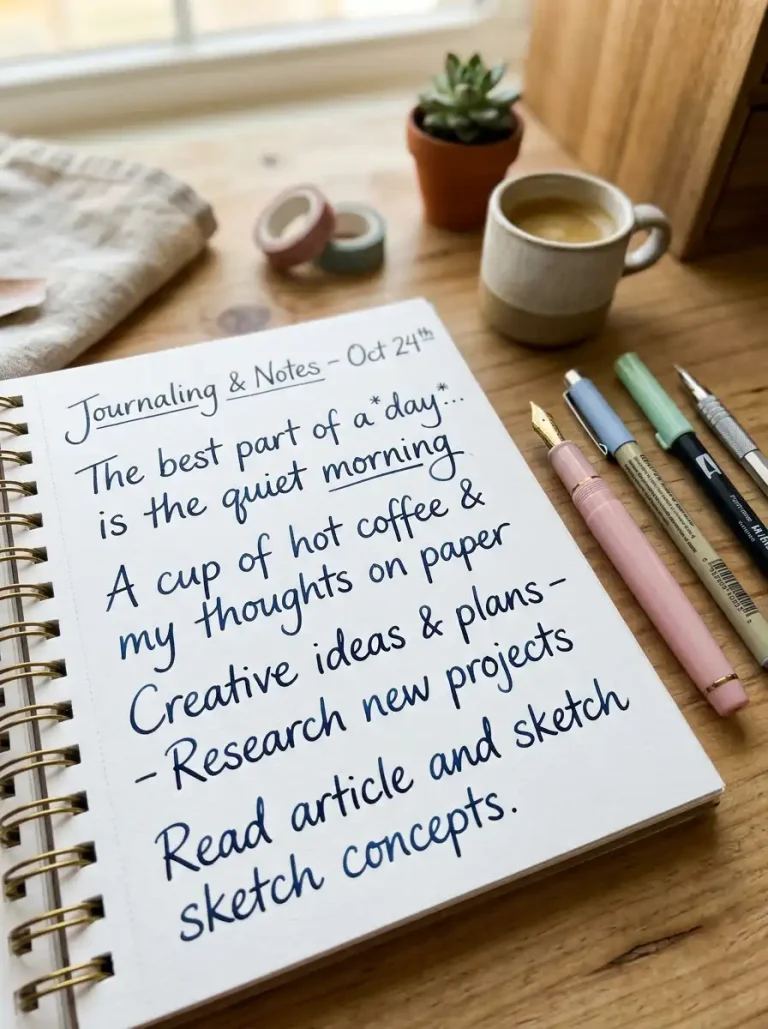 Journaling & Notes – Oct 24th
The best part of a *day*...
is the quiet morning
A cup of hot coffee &
my thoughts on paper
Creative ideas & plans –
– Research new projects
Read article and sketch
sketch concepts.